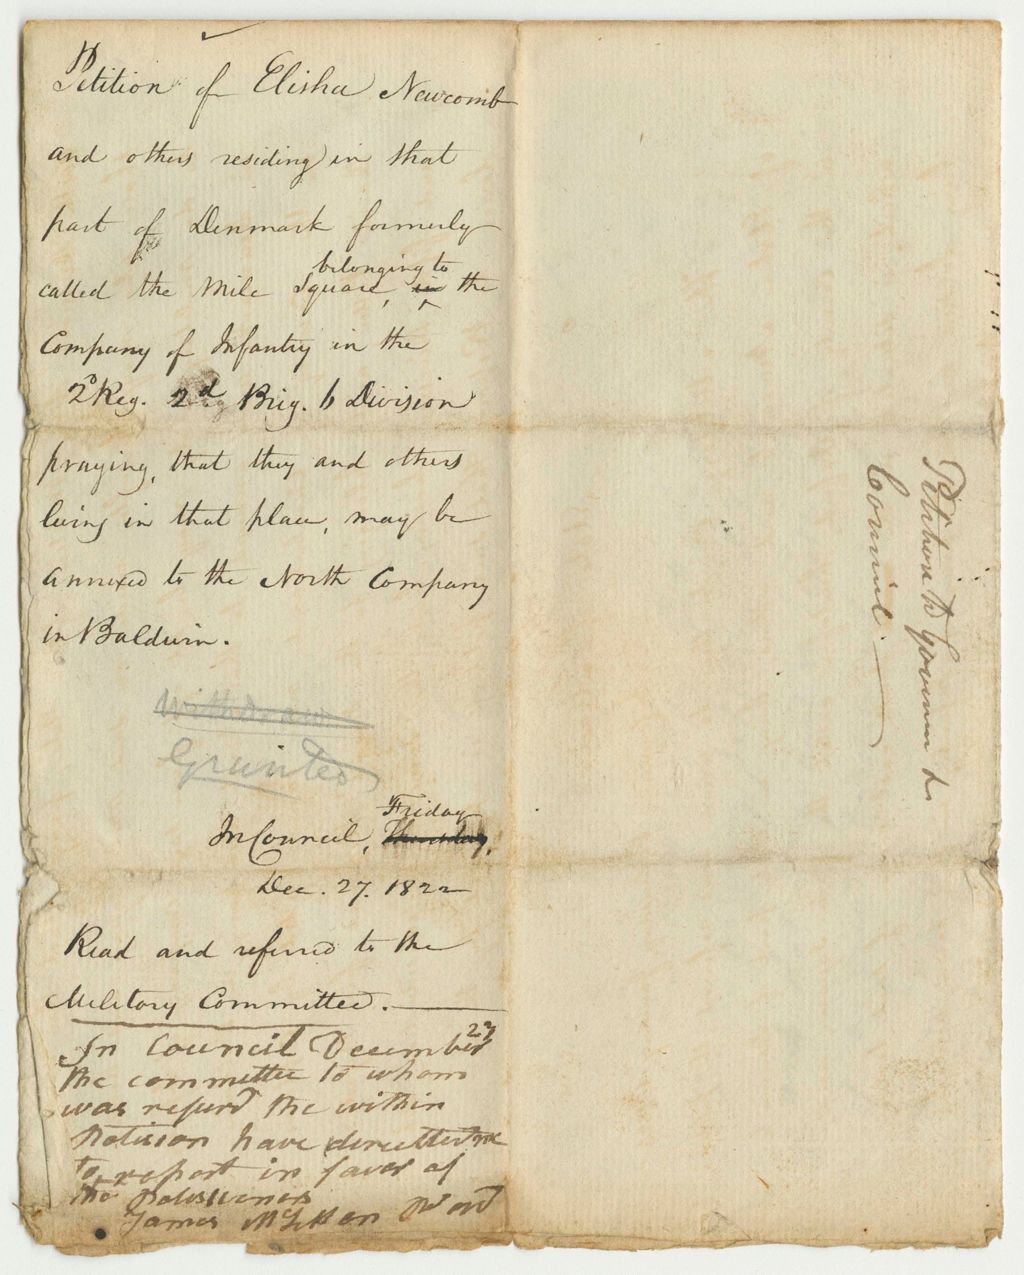 Petition of Elisha Newcomb
and others residing in that
part of Denmark formerly
belonging to
called the Mile Square, in the
Company of Infantry in the
2d Reg. 2d Brig. 6 Division
praying, that they and others
living in that place, may be
annexed to the North Company
in Baldwin.
Withdraw
Granted
Friday
In Council, Thursday,
Dec. 27. 1822
Read and referred to the
Military Committee.
In Council December 27
the committee to whom
was referd the within
Petision have directted me
to report in favor of
the Petissioners
James
Petition to Governor &
Council.